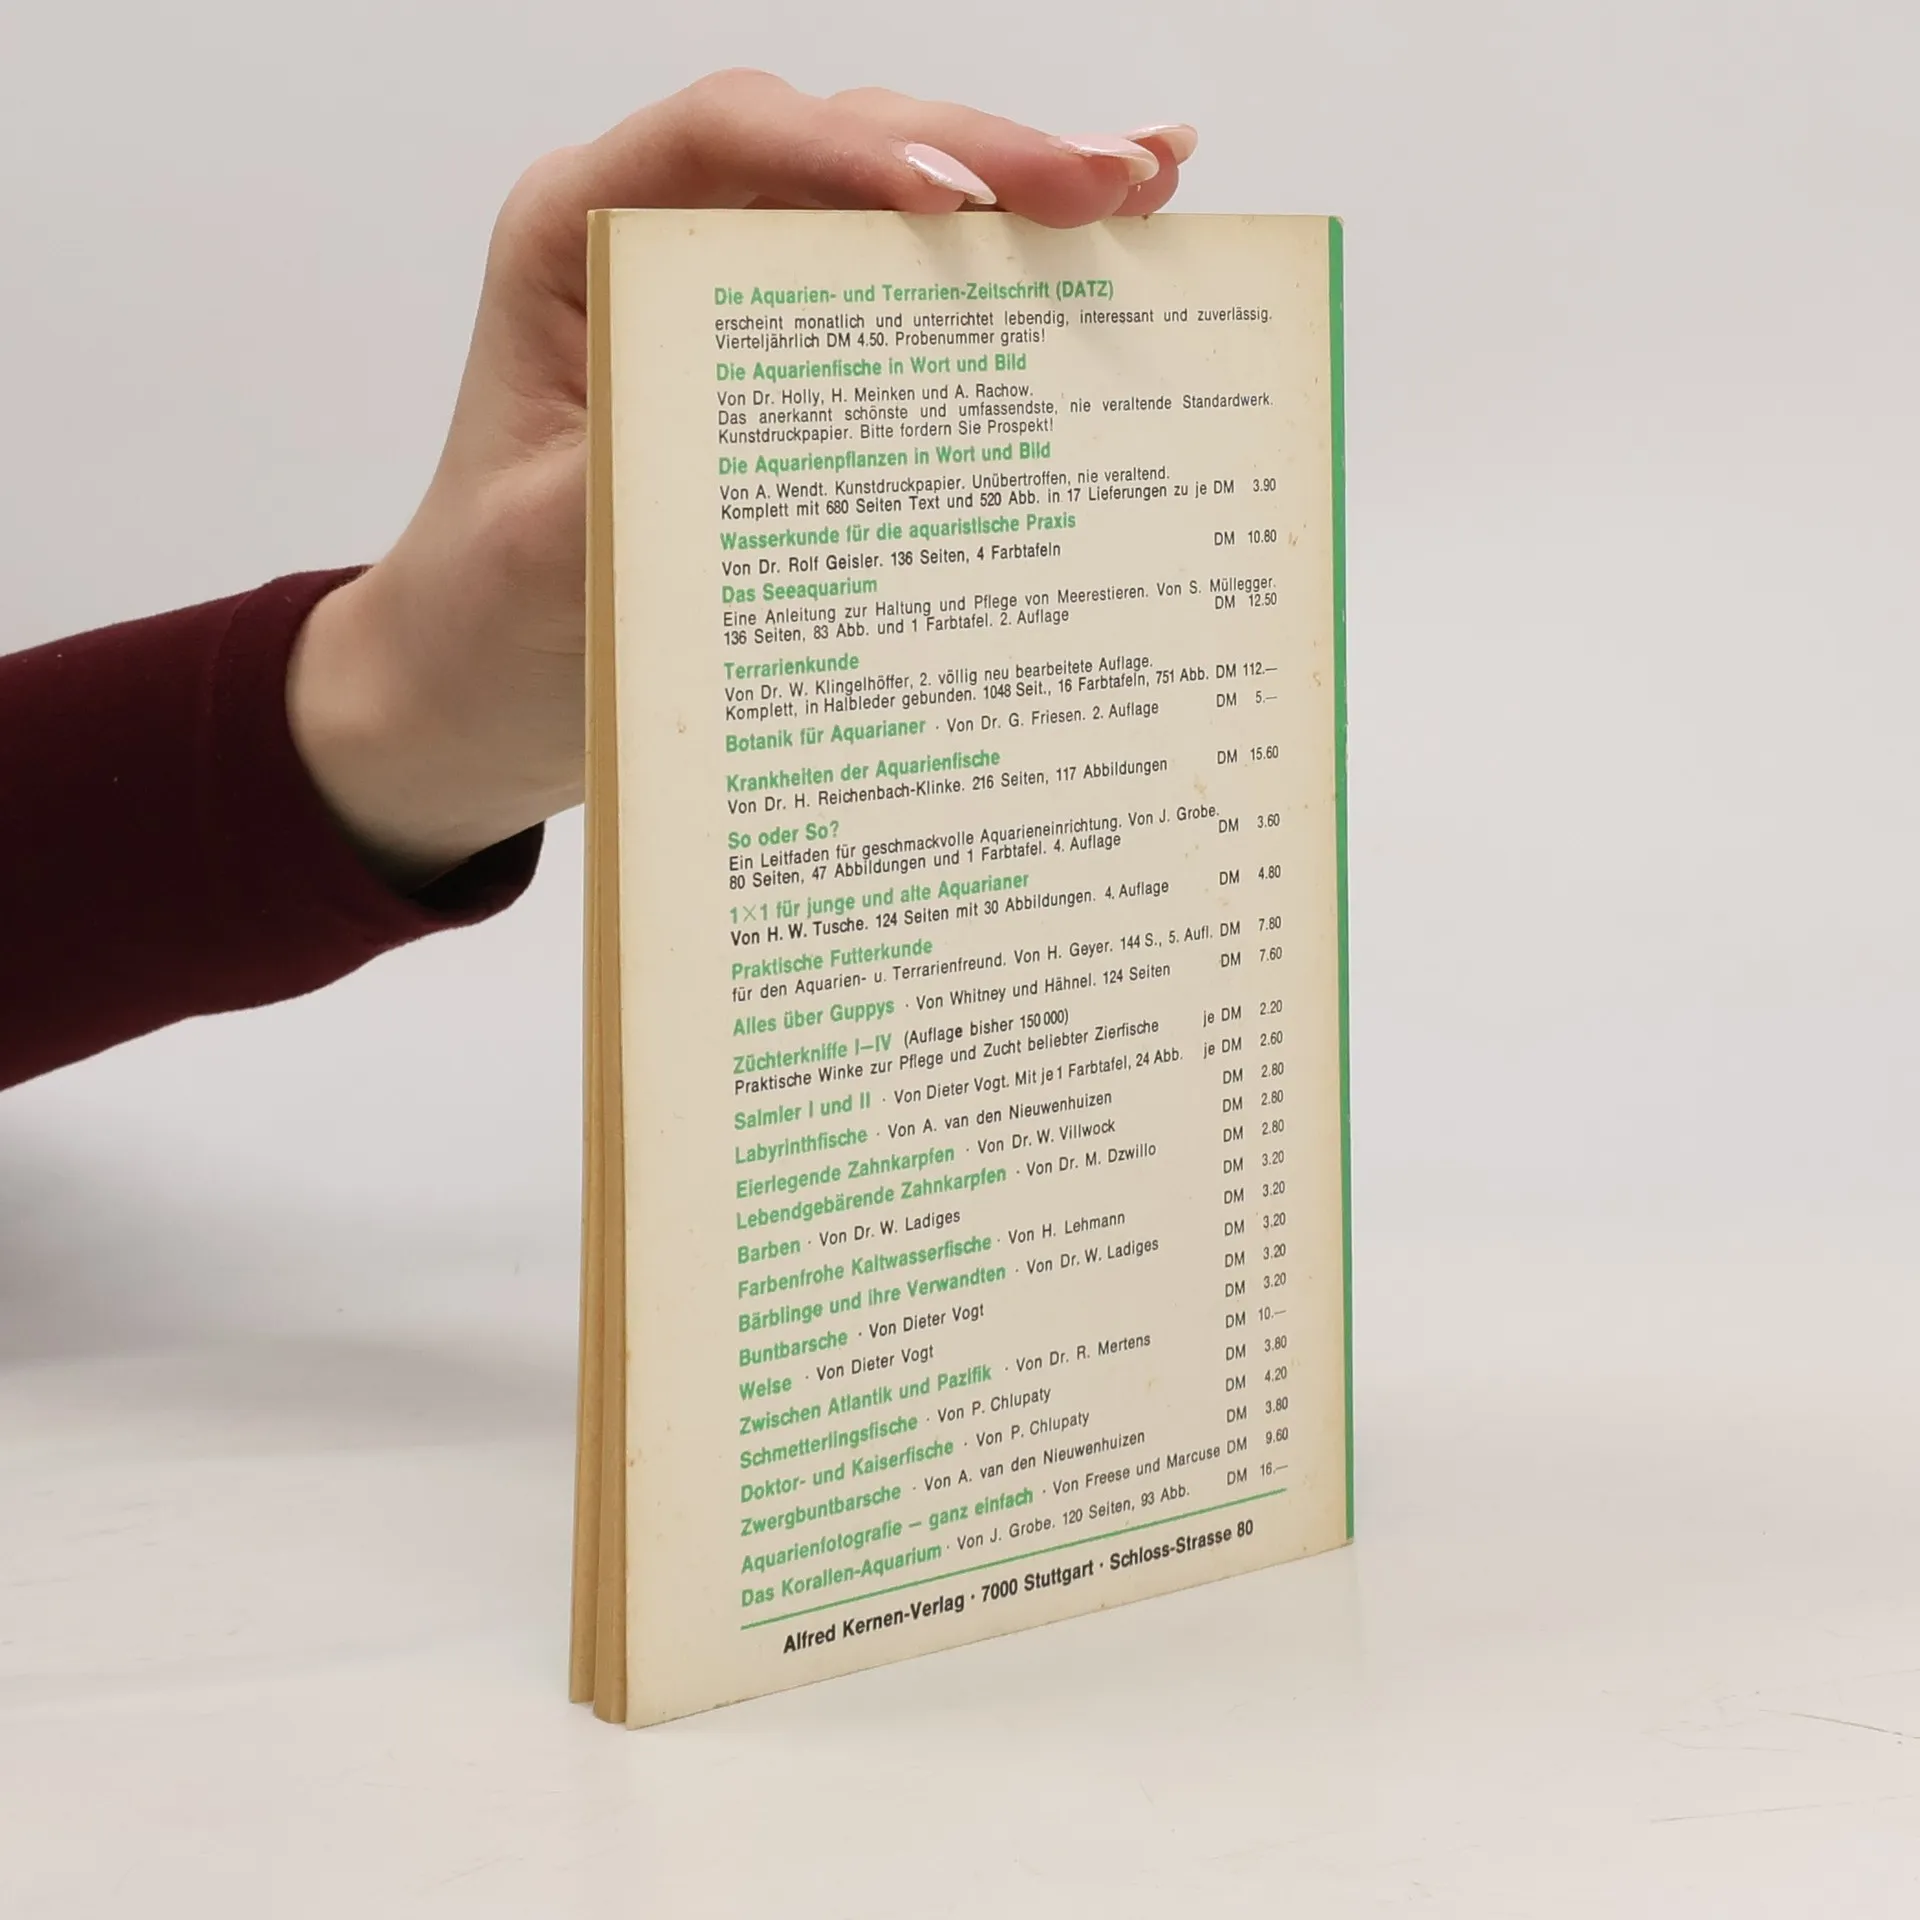 Die Aquarien- und Terrarien-Zeitschrift (DATZ)
erscheint monatlich und unterrichtet lebendig, interessant und zuverlässig.
Vierteljährlich DM 4.50. Probenummer gratis!
Die Aquarienfische in Wort und Bild
Von Dr. Holly, H. Meinken und A. Rachow.
Das anerkannt schönste und umfassendste, nie veraltende Standardwerk.
Kunstdruckpapier. Bitte fordern Sie Prospekt!
Die Aquarienpflanzen in Wort und Bild
Von A. Wendt. Kunstdruckpapier. Unübertroffen, nie veraltend.
Komplett mit 680 Seiten Text und 520 Abb. in 17 Lieferungen zu je DM 3.90
Wasserkunde für die aquaristische Praxis
Von Dr. Rolf Geisler. 136 Seiten, 4 Farbtafeln DM 10.80
Das Seeaquarium
Eine Anleitung zur Haltung und Pflege von Meerestieren. Von S. Müllegger.
136 Seiten, 83 Abb. und 1 Farbtafel. 2. Auflage DM 12.50
Terrarienkunde
Von Dr. W. Klingelhöffer, 2. völlig neu bearbeitete Auflage.
Komplett, in Halbleder gebunden. 1048 Seit., 16 Farbtafeln, 751 Abb. DM 112.—
Botanik für Aquarianer · Von Dr. G. Friesen. 2. Auflage DM 5.—
Krankheiten der Aquarienfische
Von Dr. H. Reichenbach-Klinke. 216 Seiten, 117 Abbildungen DM 15.60
So oder So?
Ein Leitfaden für geschmackvolle Aquarieneinrichtung. Von J. Grobe.
80 Seiten, 47 Abbildungen und 1 Farbtafel. 4. Auflage DM 3.60
1×1 für junge und alte Aquarianer
Von H. W. Tusche. 124 Seiten mit 30 Abbildungen. 4. Auflage DM 4.80
Praktische Futterkunde
für den Aquarien- u. Terrarienfreund. Von H. Geyer. 144 S., 5. Aufl. DM 7.80
Alles über Guppys · Von Whitney und Hähnel. 124 Seiten DM 7.60
Züchterkniffe I–IV (Auflage bisher 150 000)
Praktische Winke zur Pflege und Zucht beliebter Zierfische je DM 2.20
Salmler I und II · Von Dieter Vogt. Mit je 1 Farbtafel, 24 Abb. je DM 2.60
Labyrinthfische · Von A. van den Nieuwenhuizen DM 2.80
Eierlegende Zahnkarpfen · Von Dr. W. Villwock DM 2.80
Lebendgebärende Zahnkarpfen · Von Dr. M. Dzwillo DM 2.80
Barben · Von Dr. W. Ladiges DM 3.20
Farbenfrohe Kaltwasserfische · Von H. Lehmann DM 3.20
Bärblinge und ihre Verwandten · Von Dr. W. Ladiges DM 3.20
Buntbarsche · Von Dieter Vogt DM 3.20
Welse · Von Dieter Vogt DM 3.20
Zwischen Atlantik und Pazifik · Von Dr. R. Mertens DM 10.—
Schmetterlingsfische · Von P. Chlupaty DM 3.80
Doktor- und Kaiserfische · Von P. Chlupaty DM 4.20
Zwergbuntbarsche · Von A. van den Nieuwenhuizen DM 3.80
Aquarienfotografie – ganz einfach · Von Freese und Marcuse DM 9.60
Das Korallen-Aquarium · Von J. Grobe. 120 Seiten, 93 Abb. DM 16.—
Alfred Kernen-Verlag · 7000 Stuttgart · Schloss-Strasse 80